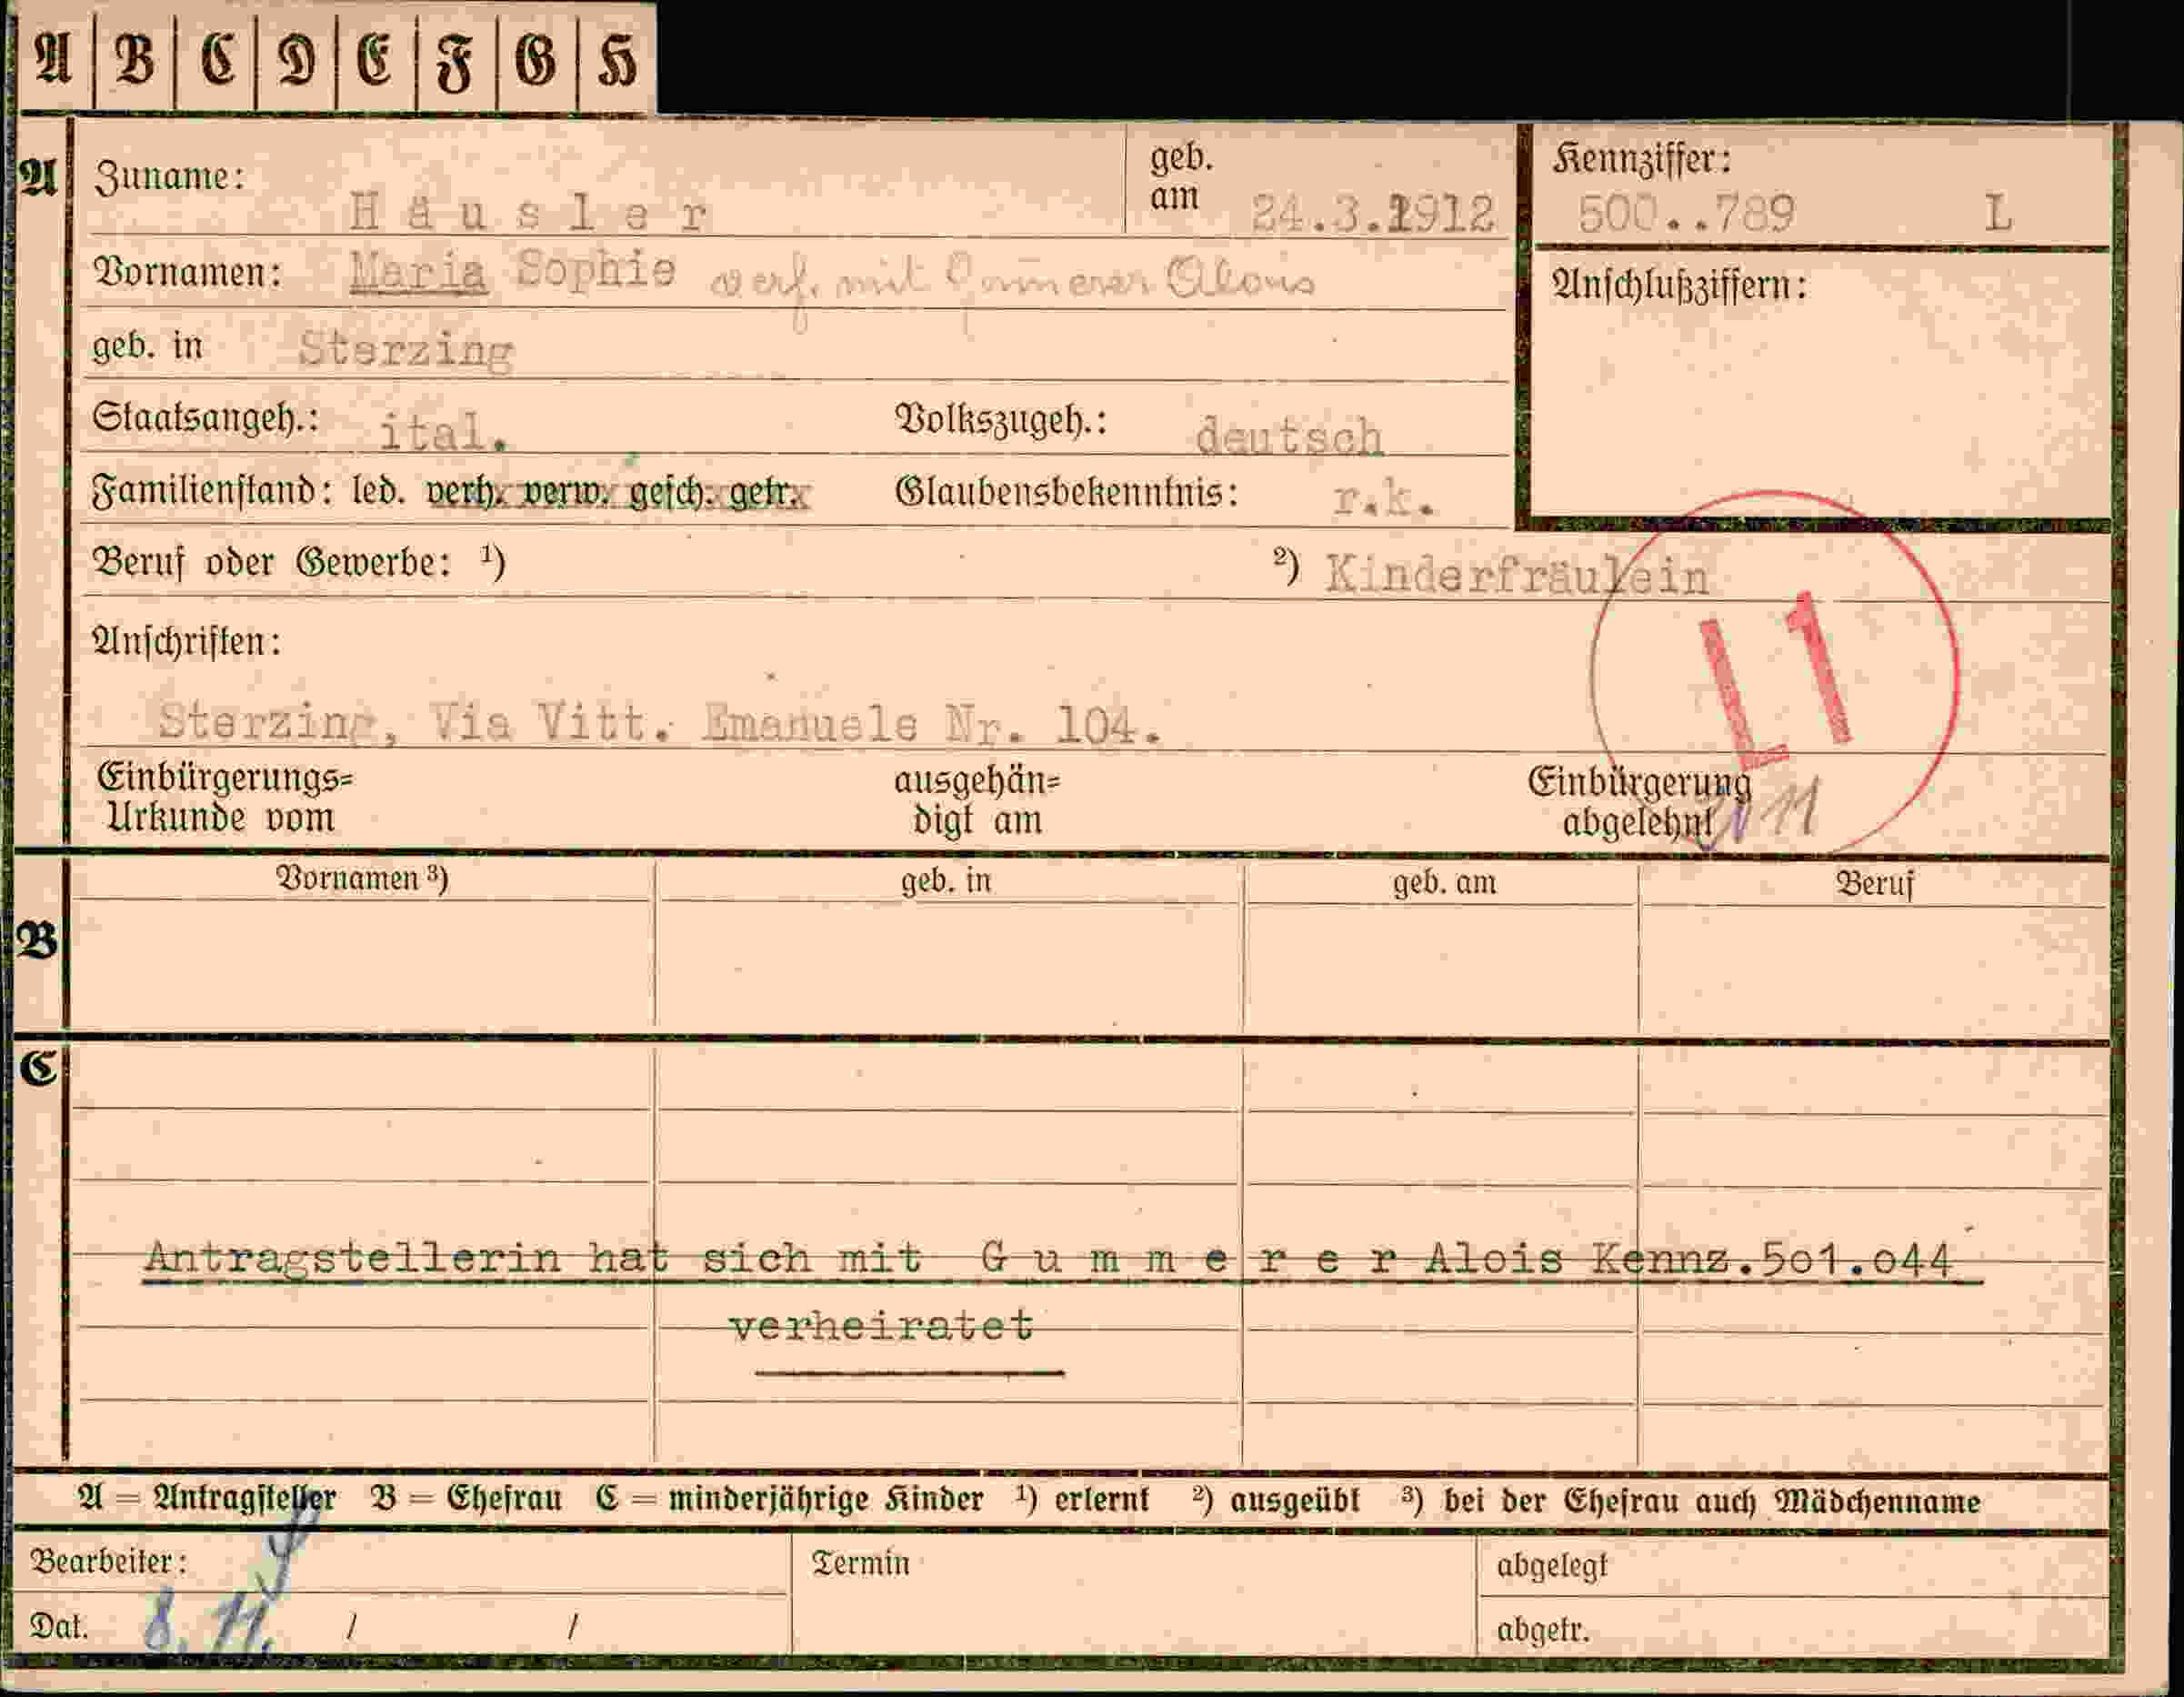 A B C D E F G H
A Zuname: Häusler geb. am 24.3.1912 Kennziffer: 500..789 L
Vornamen: Maria Sophie verh. mit Gummerer Alois Anschlußziffern:
geb. in Sterzing
Staatsangeh.: ital. Volkszugeh.: deutsch
Familienstand: led. verh. verw. gesch. getr. Glaubensbekenntnis: r.k.
Beruf oder Gewerbe: ¹) ²) Kinderfräulein
Anschriften:
L1
Sterzing, Via Vitt. Emanuele Nr. 104.
Einbürgerungs= ausgehän= Einbürgerung
Urkunde vom digt am abgelehnt 11
Vornamen ³) geb. in geb. am Beruf
B
C
Antragstellerin hat sich mit G u m m e r e r Alois Kennz.501.044
verheiratet
A = Antragsteller B = Ehefrau C = minderjährige Kinder ¹) erlernt ²) ausgeübt ³) bei der Ehefrau auch Mädchenname
Bearbeiter: Termin abgelegt
Dat. 8. 11. / / abgetr.